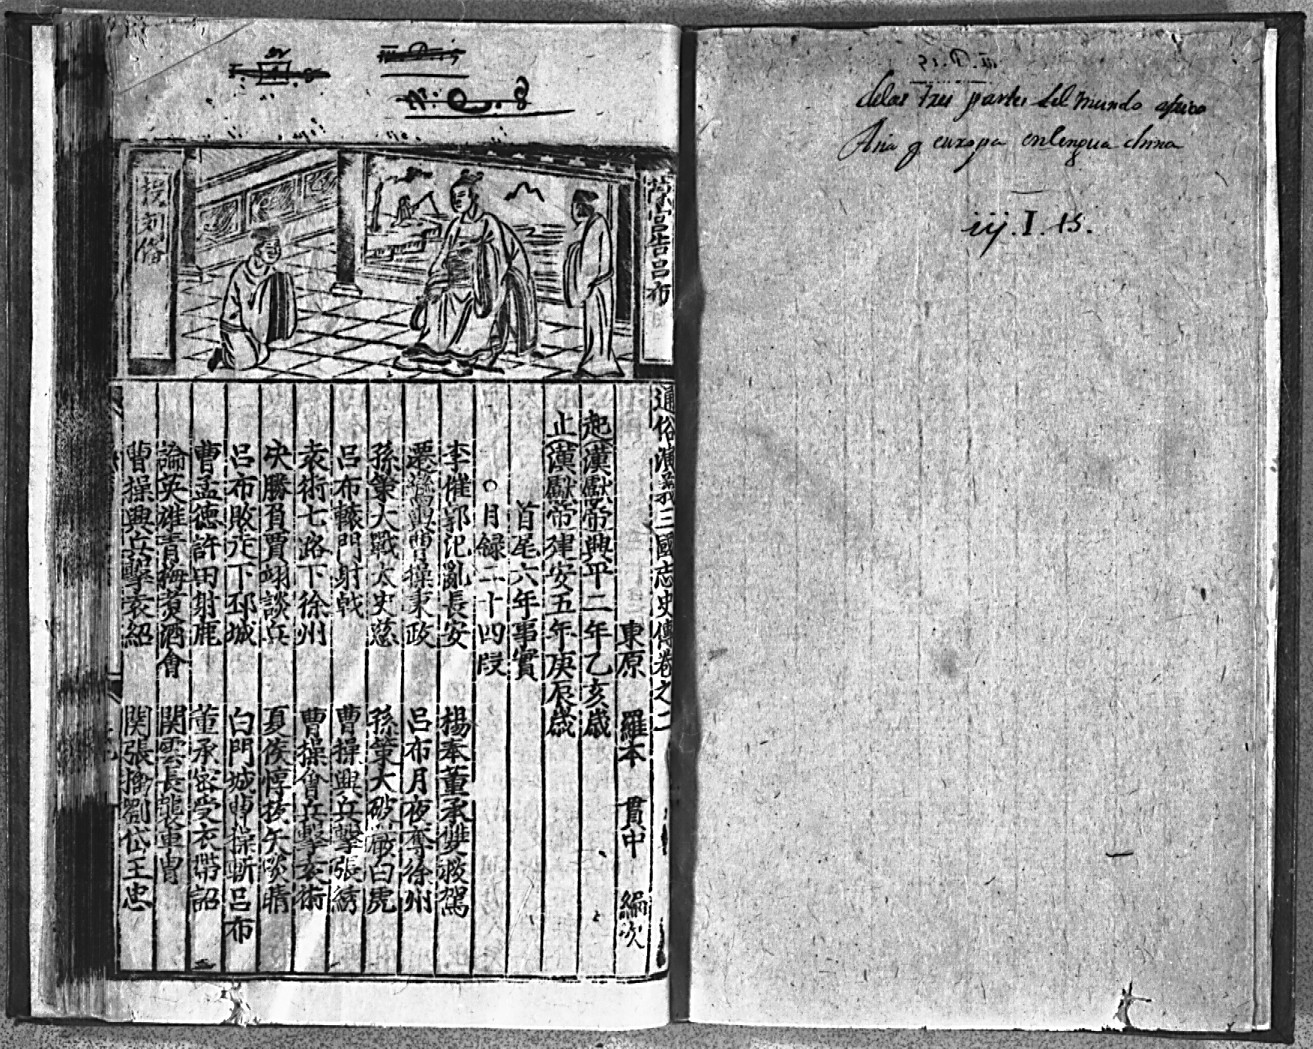 delas tres partes del mundo africa
Asia y europa en lengua china
iij. I. 15.
呂布
通俗演義三國志史傳卷之二
東原 羅本 貫中 編次
起漢獻帝興平二年乙亥歲
止漢獻帝建安五年庚辰歲
首尾六年事實
○目録二十四段
李傕郭汜亂長安 楊奉董承雙救駕
遷鑾輿曹操秉政 呂布月夜奪徐州
孫策大戰太史慈 孫策大破嚴白虎
呂布轅門射戟 曹操興兵擊張綉
袁術七路下徐州 曹操會兵擊袁術
决勝負賈詡談兵 夏侯惇拔矢啖睛
呂布敗走下邳城 白門城曹操斬呂布
曹孟德許田射鹿 董承密受衣帶詔
論英雄青梅煑酒會 関雲長襲車胄
曹操興兵擊袁紹 関張擒劉岱王忠